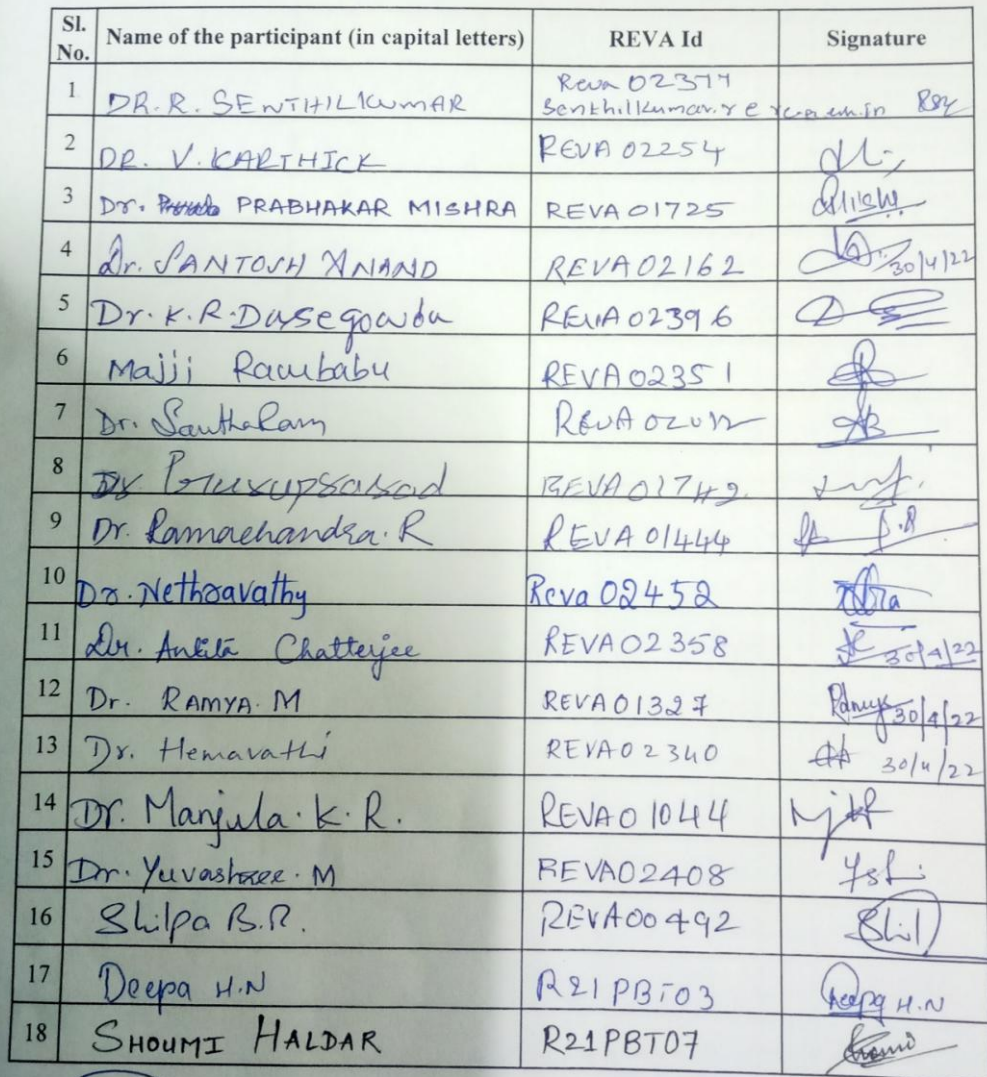 Sl. No. Name of the participant (in capital letters) REVA Id Signature
1 DR. R. SENTHILKUMAR Reva 02377
2 DR. V. KARTHICK REVA 02254
3 Dr. PRABHAKAR MISHRA REVA 01725
4 Dr. SANTOSH ANAND REVA 02162 30/4/22
5 Dr. K. R. Dasegowda REVA 02396
6 Majji Rambabu REVA 02351
7 Dr. Santhakam
8 Dr Guruprasad REVA 01742
9 Dr. Ramachandra. R REVA 01444
10 Dr. Nethravathy Reva 02452
11 Dr. Ankita Chatterjee REVA 02358 30/4/22
12 Dr. RAMYA. M REVA 01327 Ramya 30/4/22
13 Dr. Hemavathi REVA 02340 30/4/22
14 Dr. Manjula. K. R. REVA 01044
15 Dr. Yuvashree. M REVA02408
16 Shilpa B.R. REVA00492 Shil
17 Deepa H.N R21PBT03 Deepa H.N
18 SHOUMI HALDAR R21PBT07